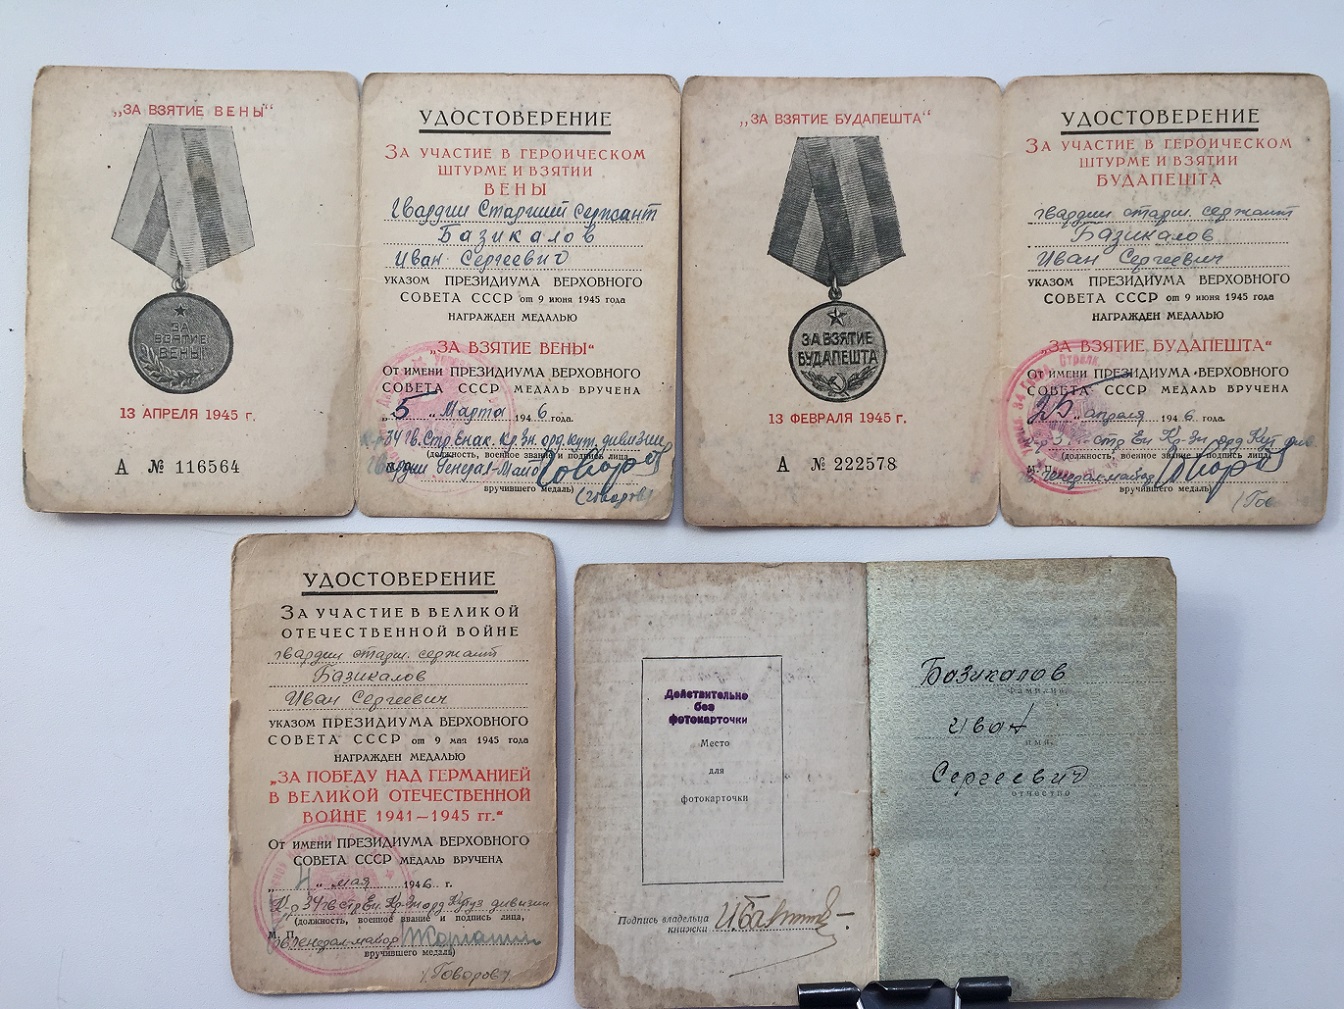 „ЗА ВЗЯТИЕ ВЕНЫ“
ЗА
ВЗЯТИЕ
ВЕНЫ
13 АПРЕЛЯ 1945 г.
А № 116564
УДОСТОВЕРЕНИЕ
ЗА УЧАСТИЕ В ГЕРОИЧЕСКОМ
ШТУРМЕ И ВЗЯТИИ
ВЕНЫ
Гвардии Старший Сержант
Базикалов
Иван Сергеевич
УКАЗОМ ПРЕЗИДИУМА ВЕРХОВНОГО
СОВЕТА СССР от 9 июня 1945 года
НАГРАЖДЕН МЕДАЛЬЮ
„ЗА ВЗЯТИЕ ВЕНЫ“
ОТ ИМЕНИ ПРЕЗИДИУМА ВЕРХОВНОГО
СОВЕТА СССР МЕДАЛЬ ВРУЧЕНА
„5„ Марта 1946 года.
К-р 34 гв. Стр. Енак. Кр. Зн. орд. кут. дивизии
(должность, военное звание и подпись лица,
Гвардии Генерал-Майор
вручившего медаль)
(Говоров)
„ЗА ВЗЯТИЕ БУДАПЕШТА“
ЗА ВЗЯТИЕ
БУДАПЕШТА
13 ФЕВРАЛЯ 1945 г.
А № 222578
УДОСТОВЕРЕНИЕ
ЗА УЧАСТИЕ В ГЕРОИЧЕСКОМ
ШТУРМЕ И ВЗЯТИИ
БУДАПЕШТА
гвардии старш. сержант
Базикалов
Иван Сергеевич
УКАЗОМ ПРЕЗИДИУМА ВЕРХОВНОГО
СОВЕТА СССР от 9 июня 1945 года
НАГРАЖДЕН МЕДАЛЬЮ
„ЗА ВЗЯТИЕ БУДАПЕШТА“
ОТ ИМЕНИ ПРЕЗИДИУМА ВЕРХОВНОГО
СОВЕТА СССР МЕДАЛЬ ВРУЧЕНА
25 апреля 1946 года.
Стр Ен Кр-Зн орд Кут див
(должность, военное звание и подпись лица,
М. П.
Генерал-майор
вручившего медаль)
УДОСТОВЕРЕНИЕ
ЗА УЧАСТИЕ В ВЕЛИКОЙ
ОТЕЧЕСТВЕННОЙ ВОЙНЕ
гвардии старш. сержант
Базикалов
Иван Сергеевич
УКАЗОМ ПРЕЗИДИУМА ВЕРХОВНОГО
СОВЕТА СССР от 9 мая 1945 года
НАГРАЖДЕН МЕДАЛЬЮ
„ЗА ПОБЕДУ НАД ГЕРМАНИЕЙ
В ВЕЛИКОЙ ОТЕЧЕСТВЕННОЙ
ВОЙНЕ 1941—1945 гг.“
ОТ ИМЕНИ ПРЕЗИДИУМА ВЕРХОВНОГО
СОВЕТА СССР МЕДАЛЬ ВРУЧЕНА
мая 1946 г.
К-р 34 гв стр Ен. Кр-Зн орд Кутуз дивизии
(должность, военное звание и подпись лица,
М. П.
генерал-майор
вручившего медаль)
(Говоров)
Действительно
без
фотокарточки
Место
для
фотокарточки
Подпись владельца
книжки
Базикалов
фамилия
Иван
имя
Сергеевич
отчество